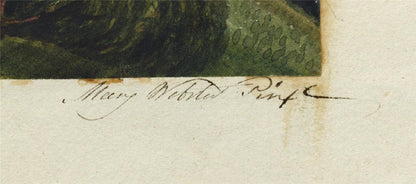 Meen Webster Pinxt